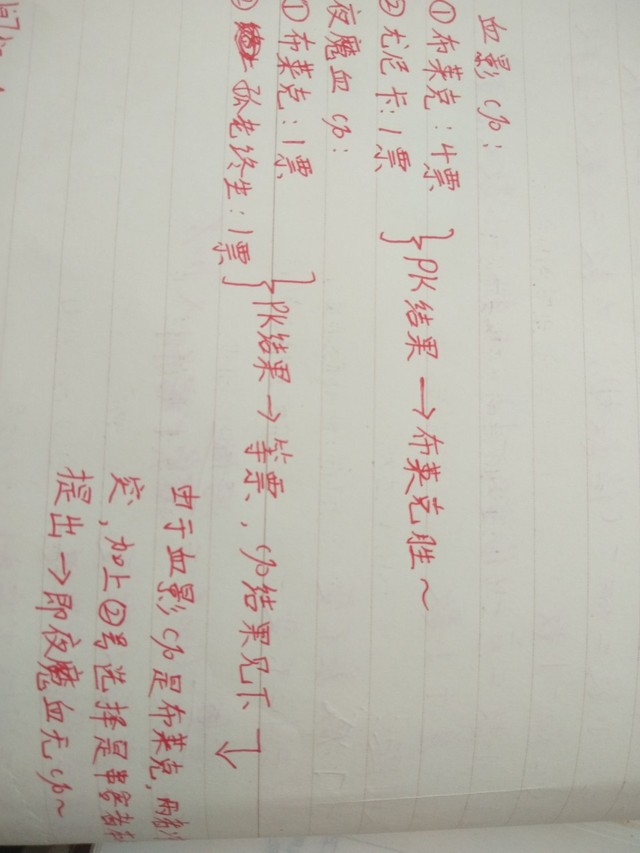 血影cp：
①布莱克：4票
②尤尼卡：1票
}PK结果→布莱克胜～
夜魔血cp：
①布莱克：1票
② 孤老终生：1票
}PK结果→等票，cp结果见下↓
由于血影cp是布莱克，两者
突，加上②号选择是
提出→即夜魔血无cp～